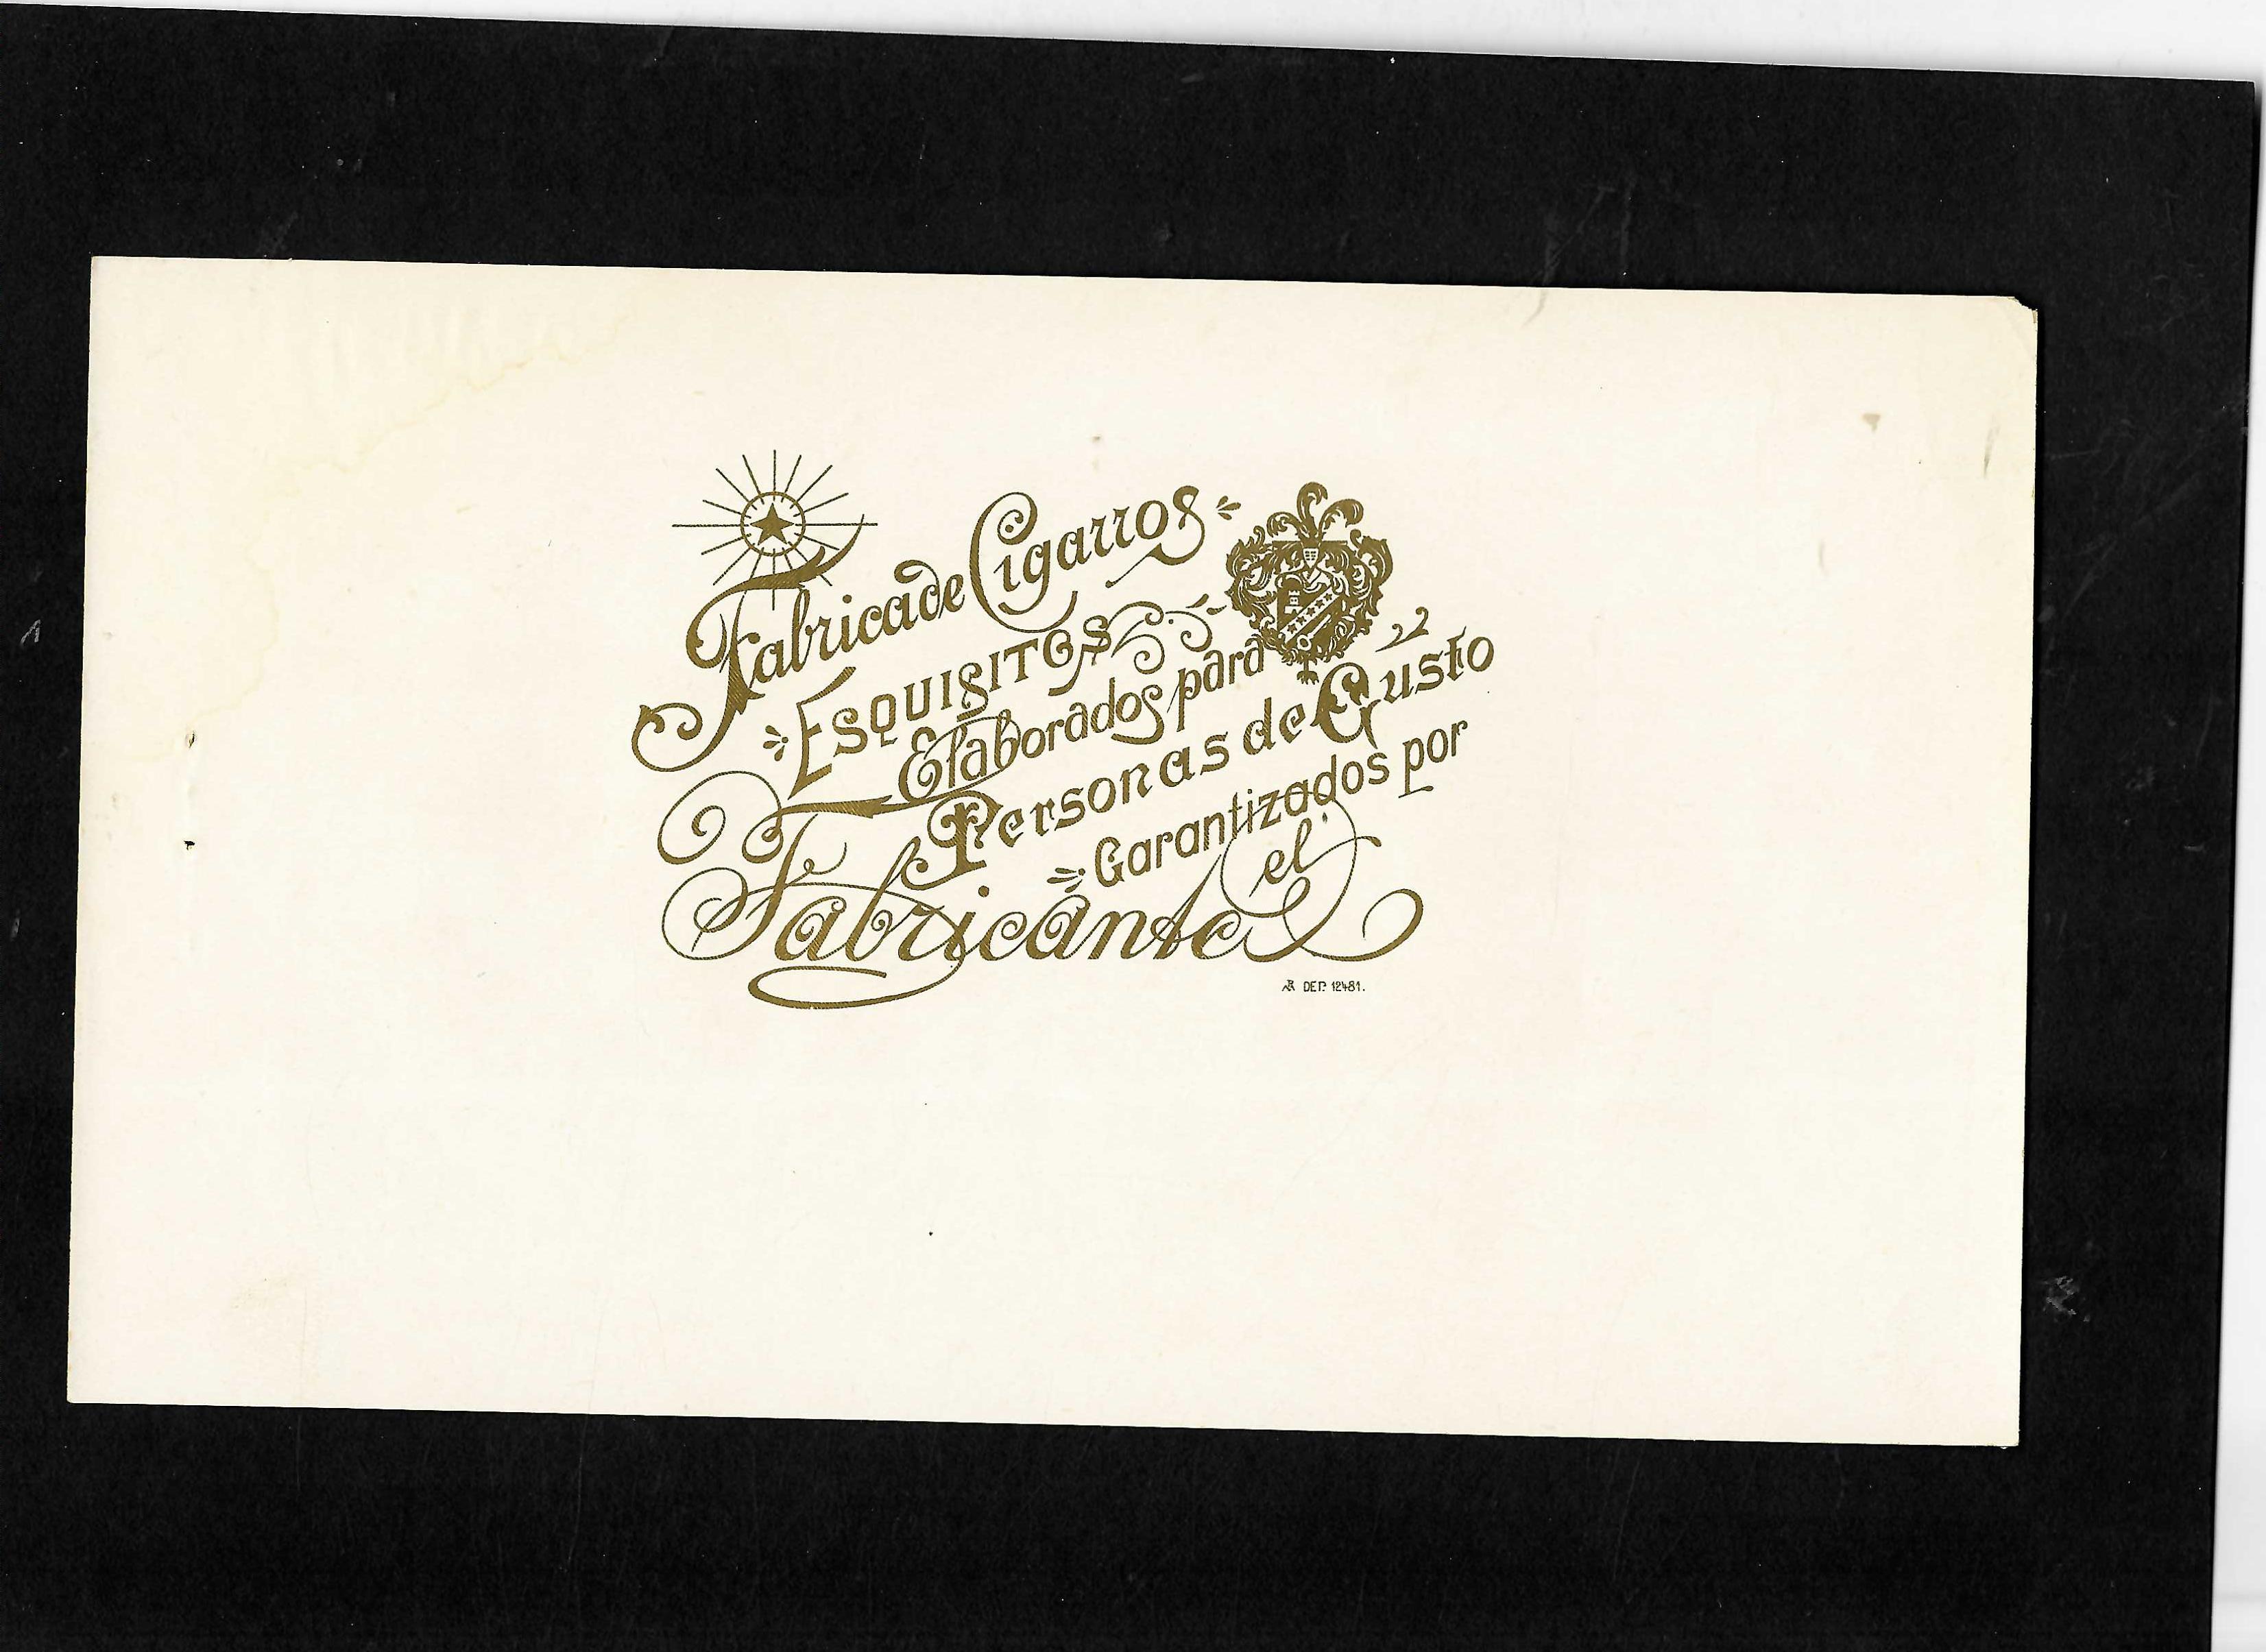 Fabrica de Cigarros
ESQUISITOS
Elaborados para
Personas de Gusto
Garantizados por
el
Fabricante
DEP. 12481.